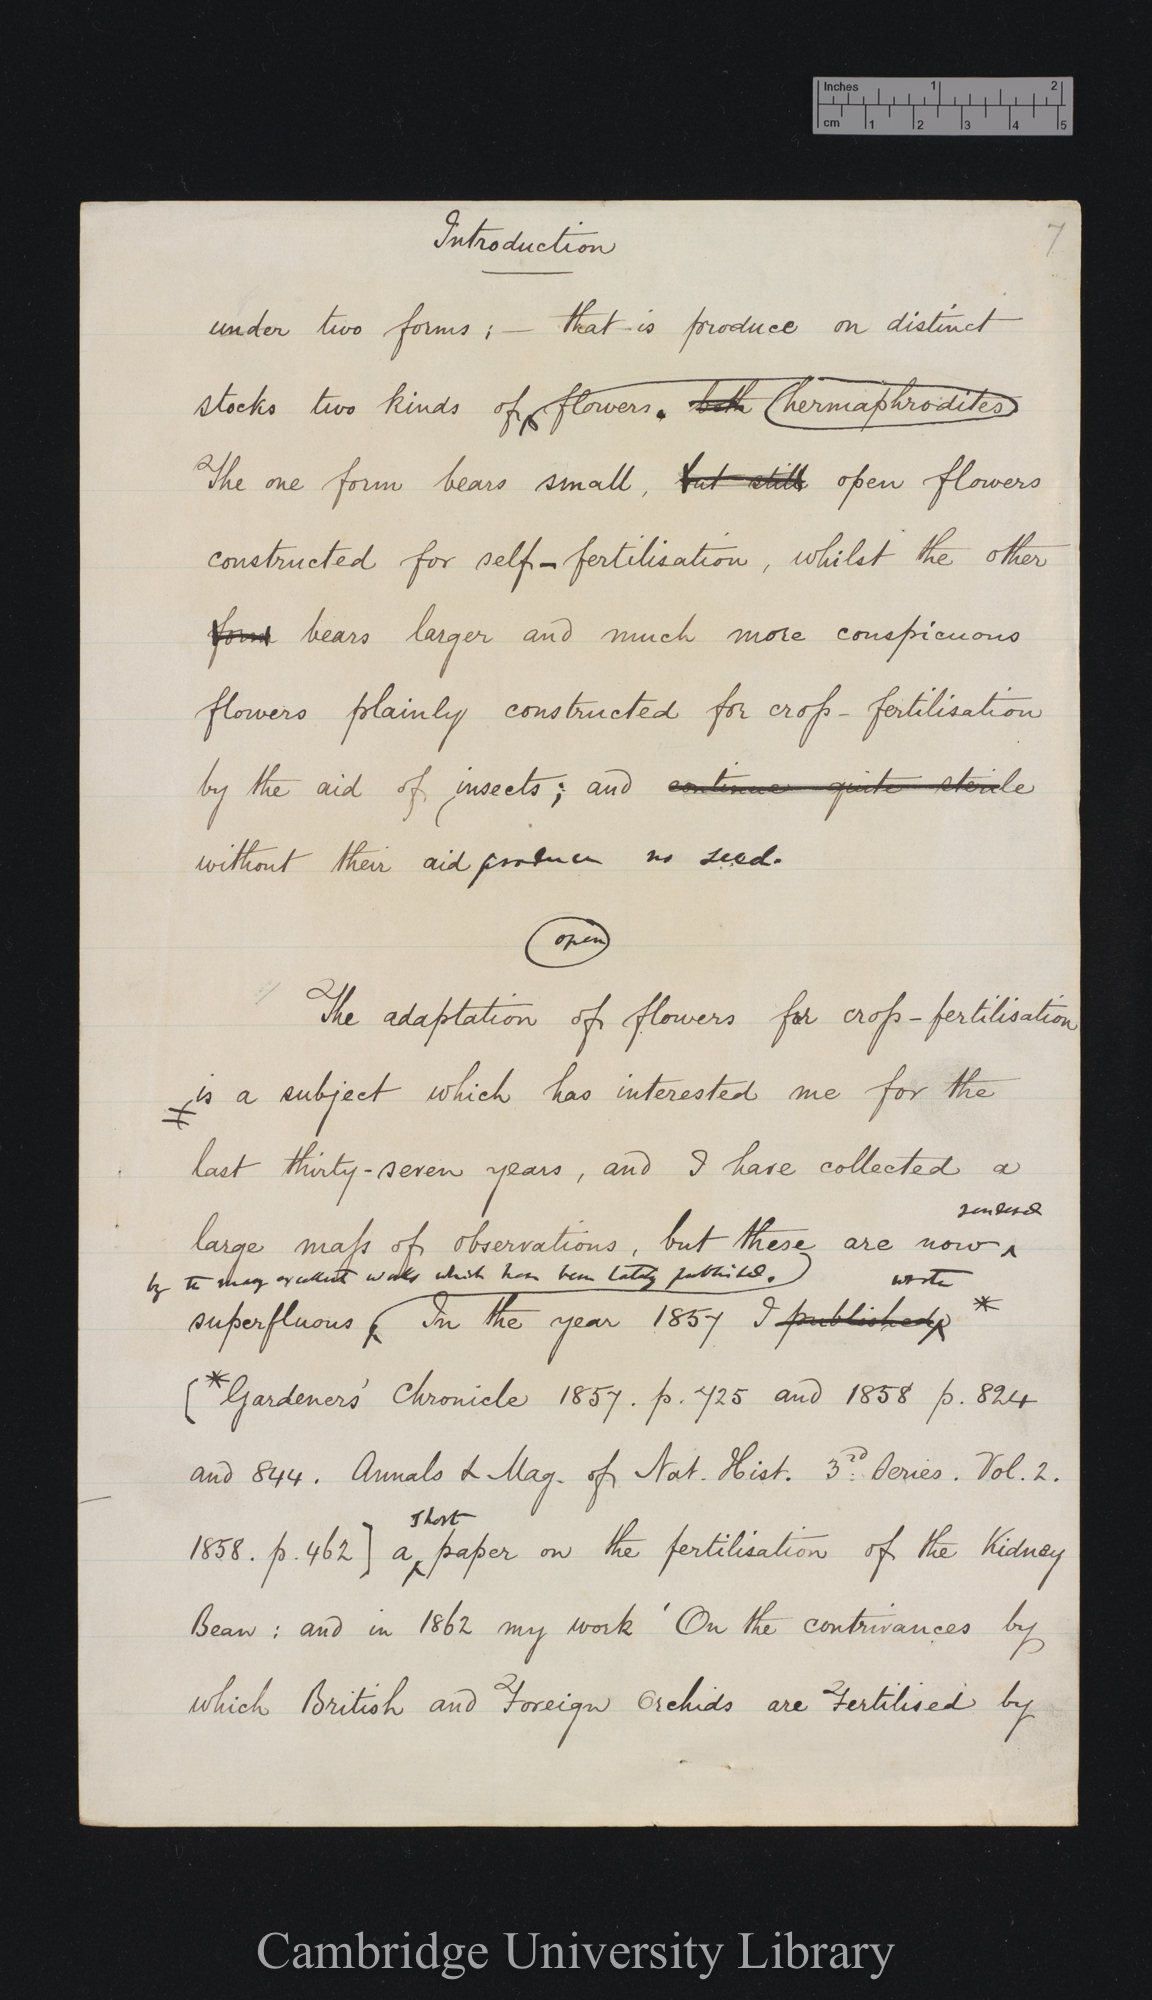 Inches 1 2
cm 1 2 3 4 5
Introduction
7
under two forms; — that is produce on distinct
stocks two kinds of flowers. both hermaphrodites
The one form bears small, but still open flowers
constructed for self-fertilisation, whilst the other
form bears larger and much more conspicuous
flowers plainly constructed for cross-fertilisation
by the aid of insects; and continue quite sterile
without their aid produce no seed.
open
The adaptation of flowers for cross-fertilisation
is a subject which has interested me for the
last thirty-seven years, and I have collected a
large mass of observations, but these are now
rendered
by the many excellent works which have been lately published.
wrote
superfluous In the year 1857 I published *
[*Gardeners' Chronicle 1857. p. 725 and 1858 p. 824
and 844. Annals & Mag. of Nat. Hist. 3rd Series. Vol. 2.
short
1858. p. 462] a paper on the fertilisation of the Kidney
Bean: and in 1862 my work 'On the contrivances by
which British and Foreign Orchids are Fertilised by
Cambridge University Library